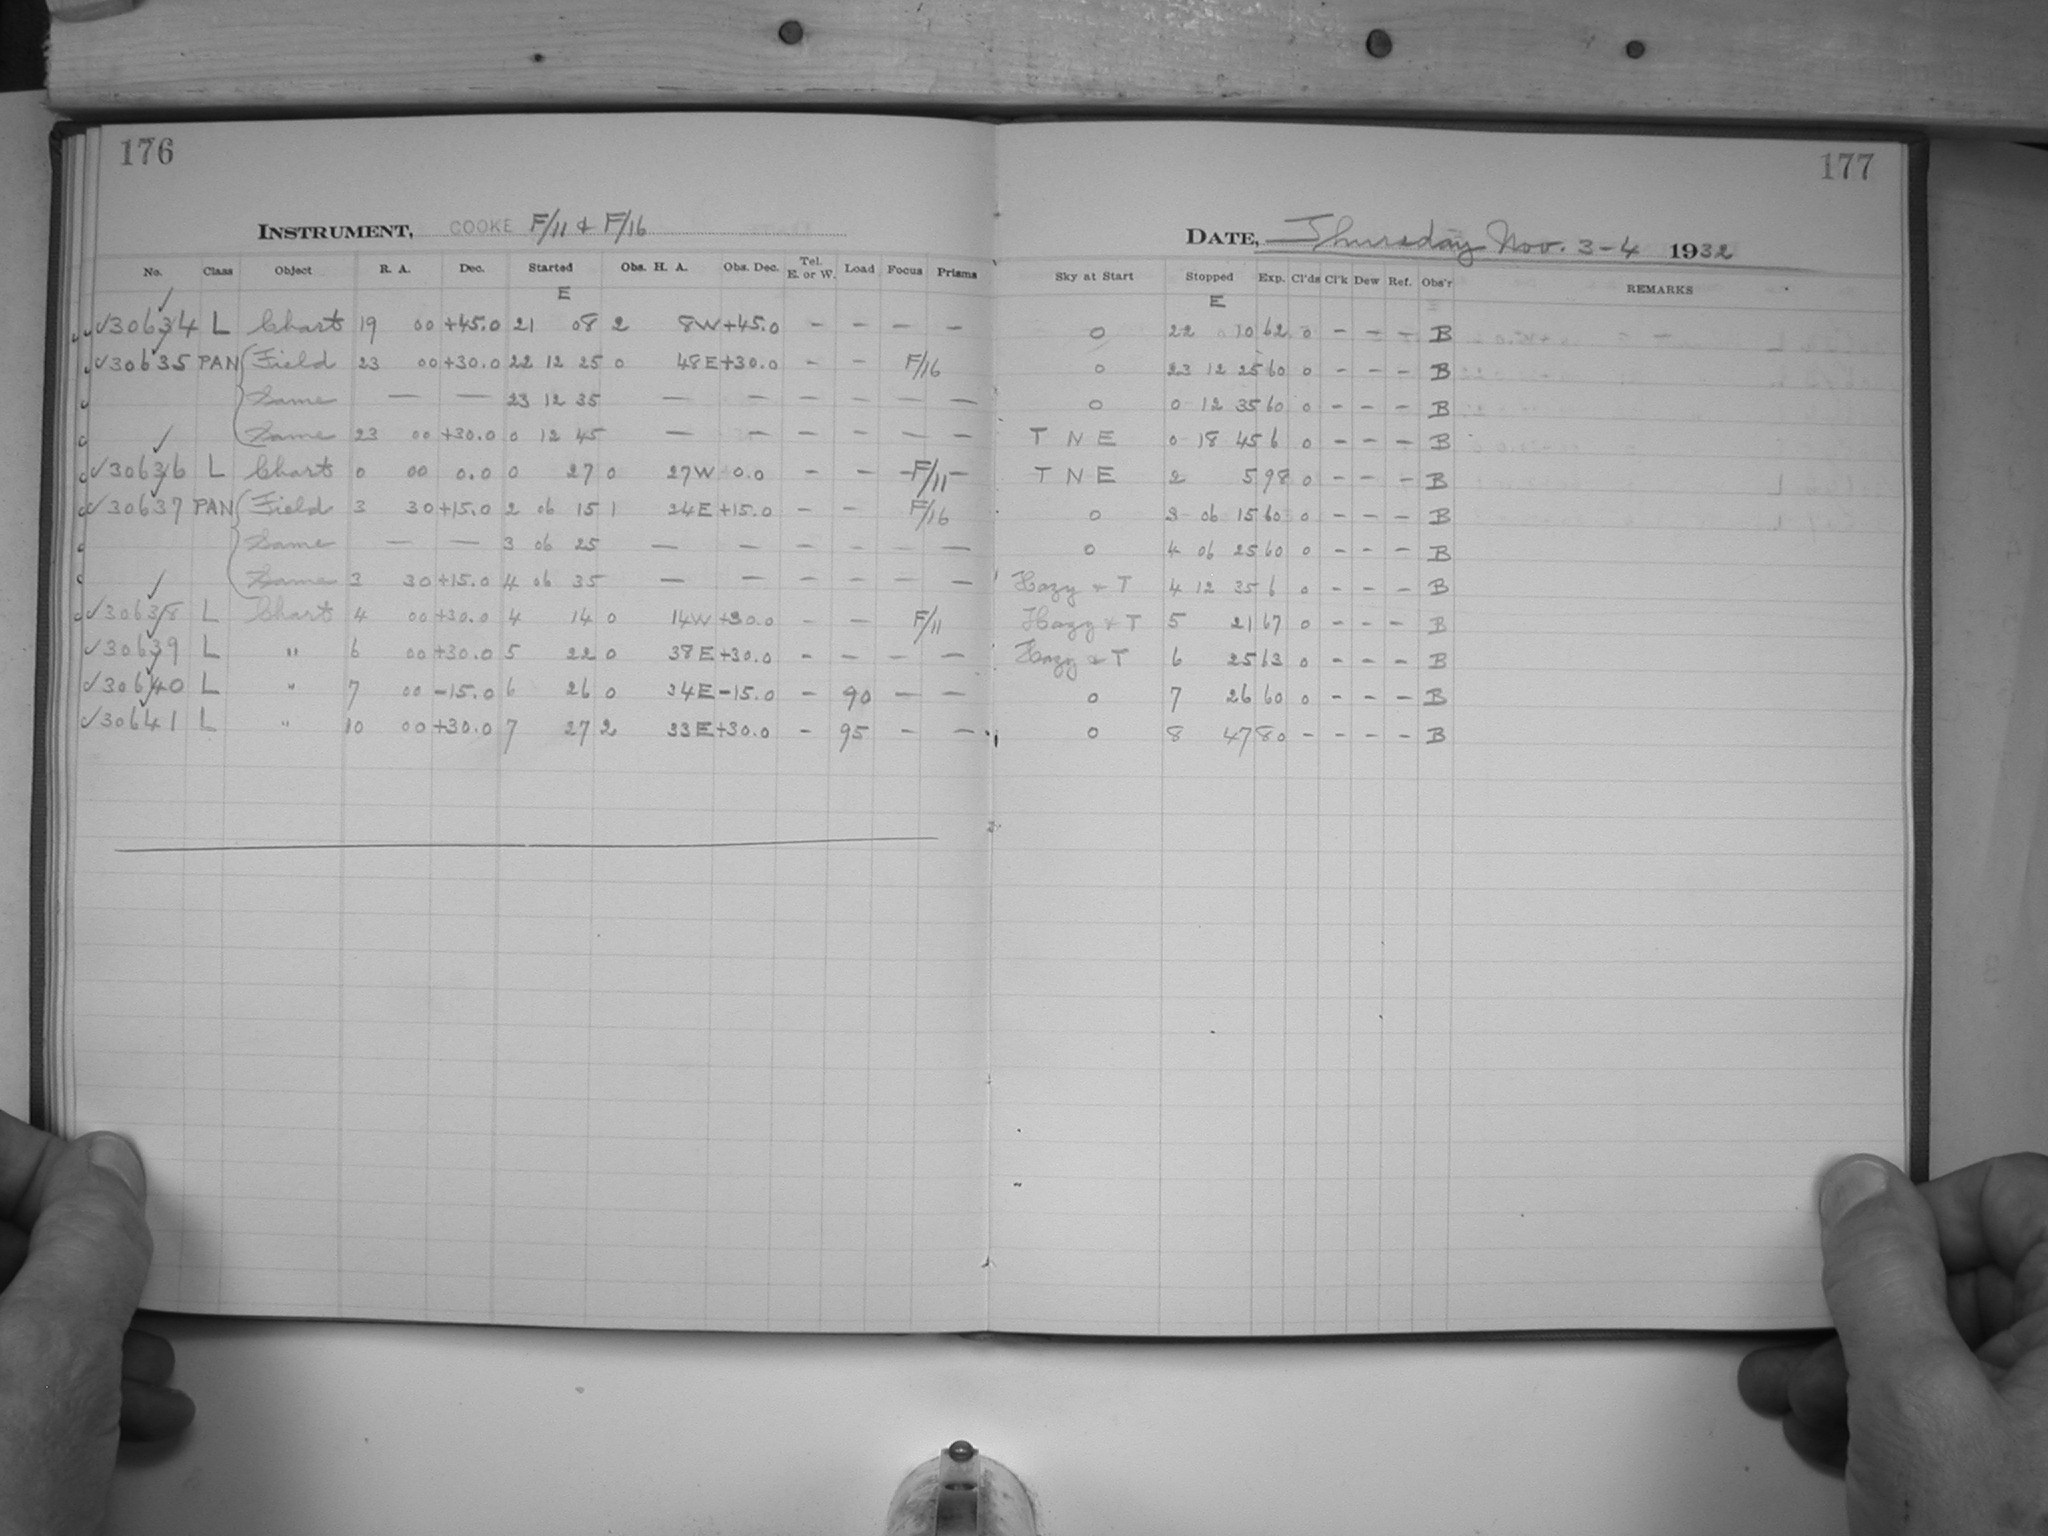 176
177
INSTRUMENT, COOKE F/11 & F/16
DATE, Thursday Nov. 3-4 1932
No. Class Object R. A. Dec. Started Obs. H. A. Obs. Dec. Tel. E. or W. Load Focus Prisms Sky at Start Stopped Exp. Cl'ds Cl'k Dew Ref. Obs'r REMARKS
E E
✓30634 L Chart 19 00 +45.0 21 08 2 8W +45.0 - - - - 0 22 10 62 0 - - - B
✓30635 PAN Field 23 00 +30.0 22 12 25 0 48E +30.0 - - F/16 0 23 12 25 60 0 - - - B
Same — — 23 12 35 — - - - - — 0 0 12 35 60 0 - - - B
Same 23 00 +30.0 0 12 45 — - - - - - T N E 0 18 45 6 0 - - - B
✓30636 L Chart 0 00 0.0 0 27 0 27W 0.0 - - -F/11- T N E 2 5 98 0 - - - B
✓30637 PAN Field 3 30 +15.0 2 06 15 1 24E +15.0 - - F/16 0 3 06 15 60 0 - - - B
Same — — 3 06 25 — - - - - — 0 4 06 25 60 0 - - - B
Same 3 30 +15.0 4 06 35 — - - - - - Hazy & T 4 12 35 6 0 - - - B
✓30638 L Chart 4 00 +30.0 4 14 0 14W +30.0 - - F/11 Hazy & T 5 21 67 0 - - - B
✓30639 L " 6 00 +30.0 5 22 0 38E +30.0 - - - - Hazy & T 6 25 63 0 - - - B
✓30640 L " 7 00 -15.0 6 26 0 34E -15.0 - 90 - - 0 7 26 60 0 - - - B
✓30641 L " 10 00 +30.0 7 27 2 33E +30.0 - 95 - - 0 8 47 80 - - - - B